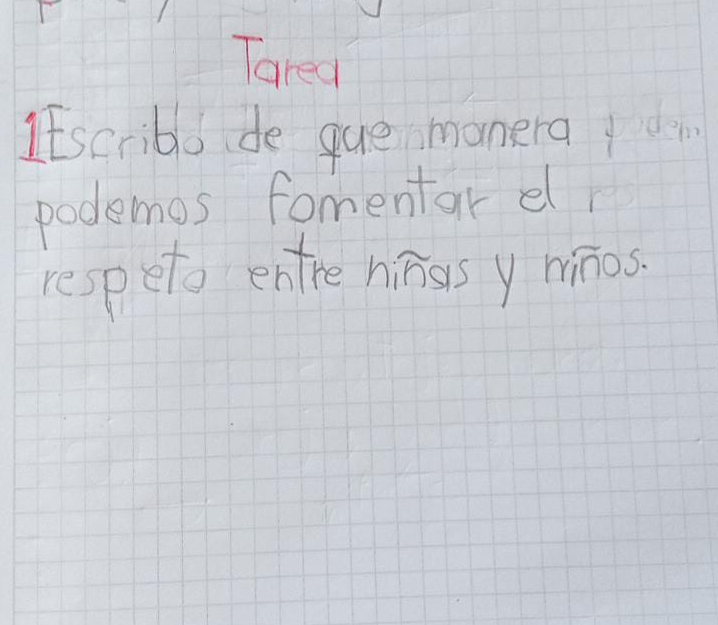 Tarea
1 Escribo de que manera
podemos fomentar el
respeto entre niñas y niños.